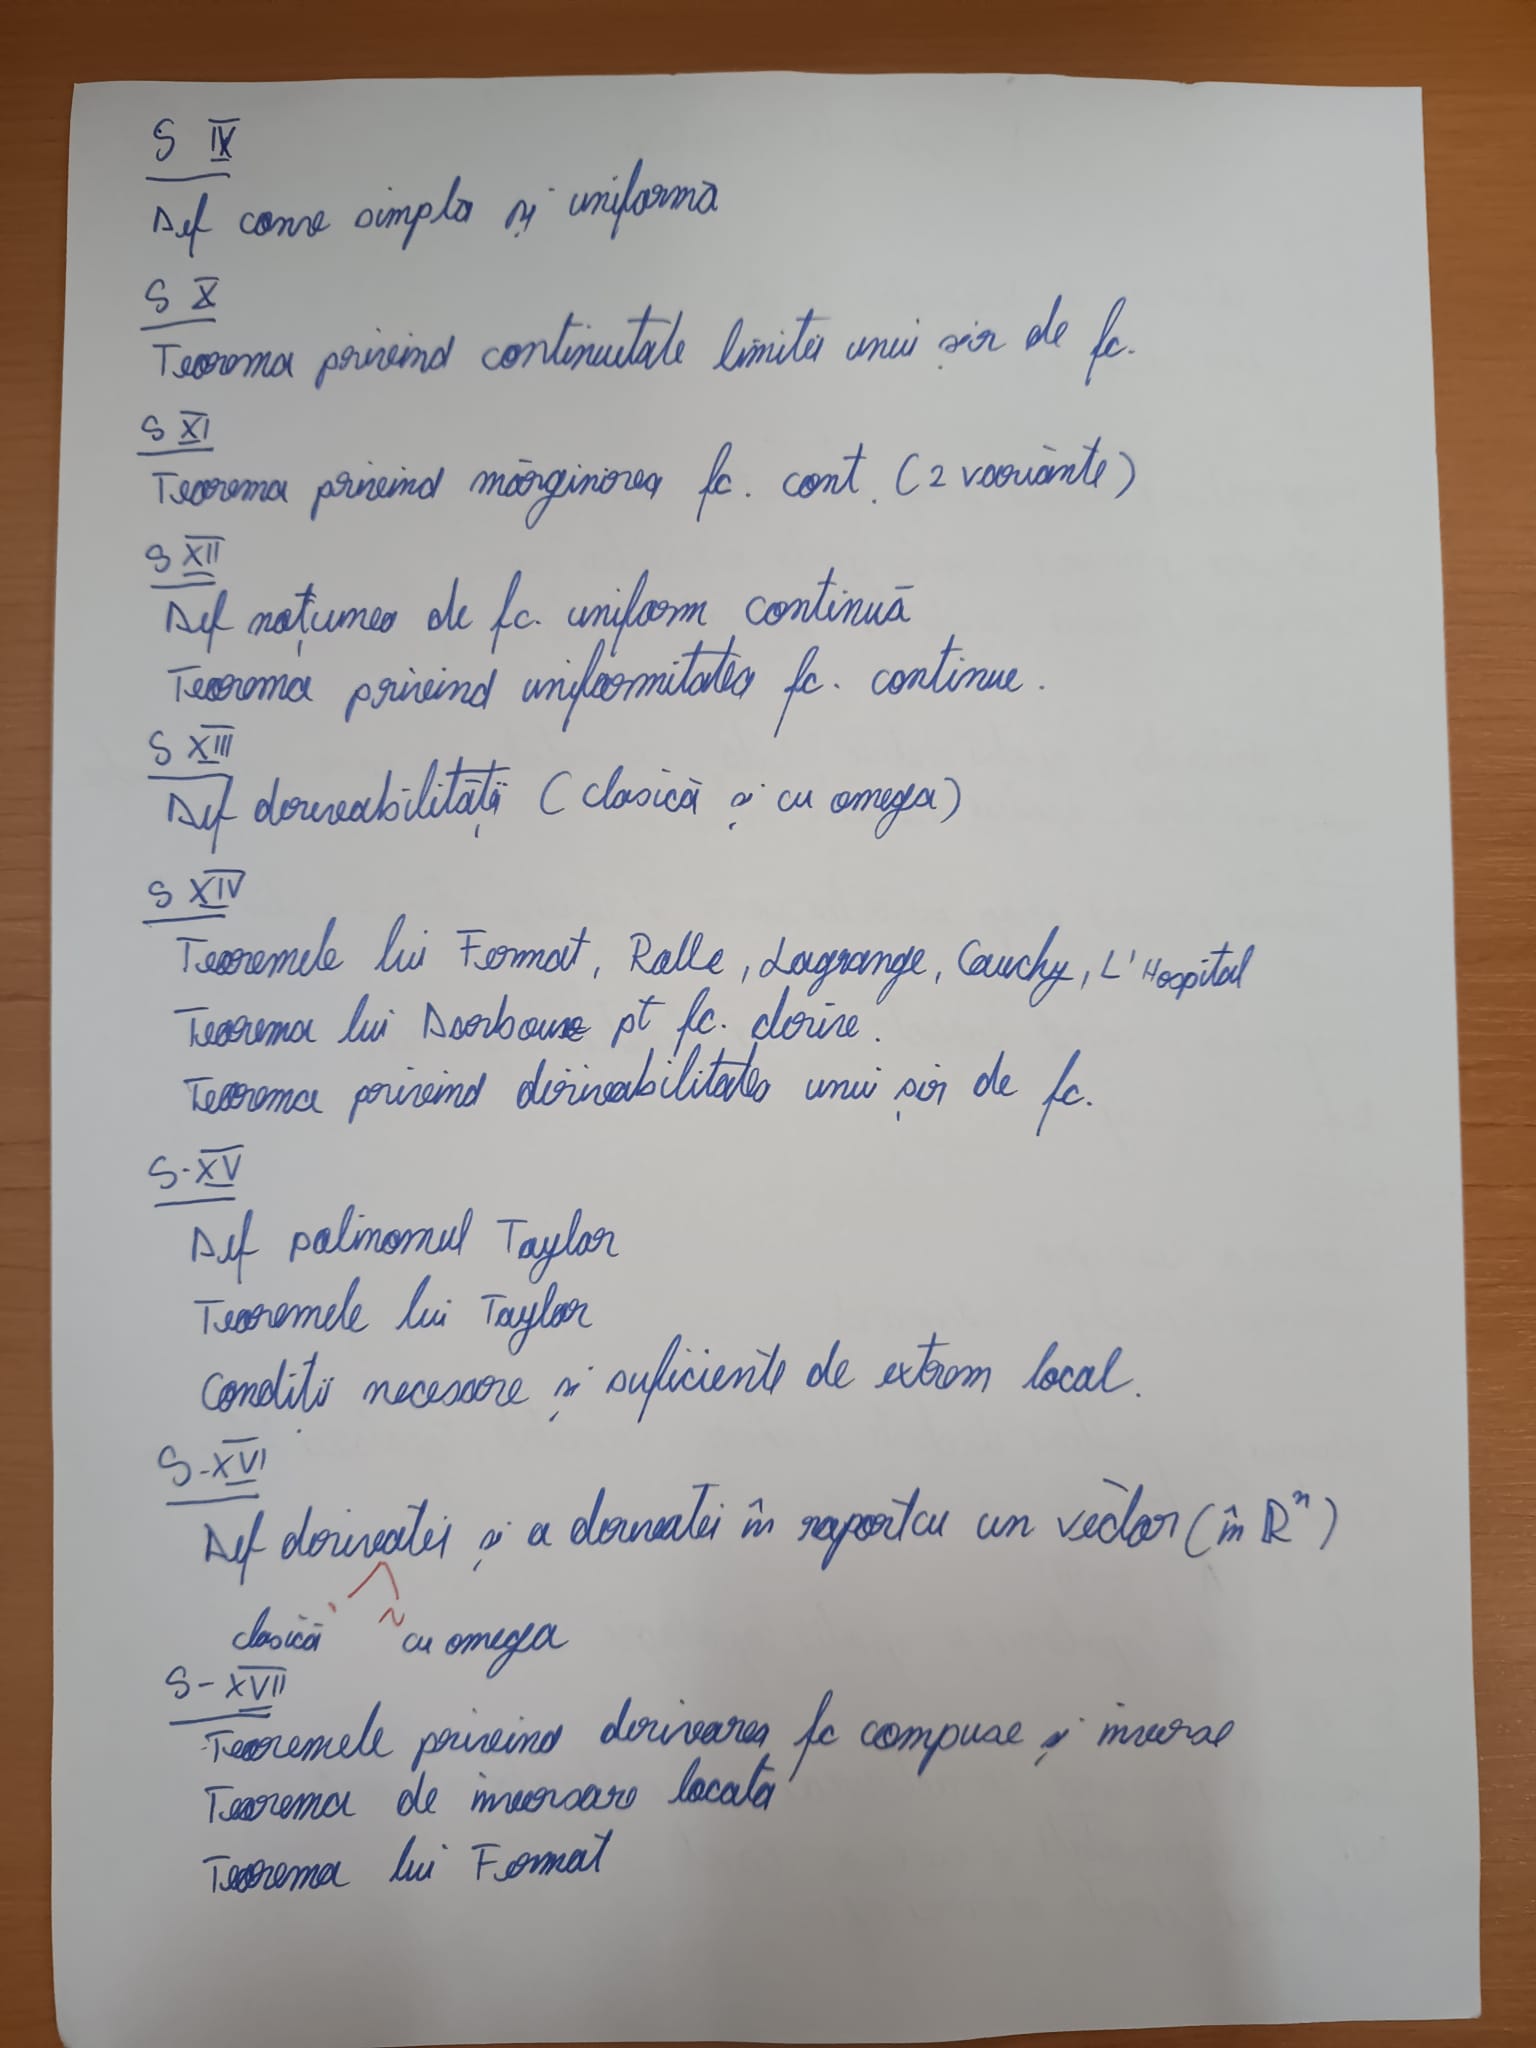 S IX
Def conv simplă și uniformă
S X
Teorema privind continuitate limitei unui șir de fc.
S XI
Teorema privind mărginirea fc. cont. (2 variante)
S XII
Def noțiunea de fc. uniform continuă
Teorema privind uniformitatea fc. continue.
S XIII
Def derivabilității (clasică și cu omega)
S XIV
Teoremele lui Fermat, Rolle, Lagrange, Cauchy, L'Hospital
Teorema lui Darboux pt fc. derive.
Teorema privind derivabilitatea unui șir de fc.
S-XV
Def polinomul Taylor
Teoremele lui Taylor
Condiții necesare și suficiente de extrem local.
S-XVI
Def derivatei și a derivatei în raport cu un vector (în ℝⁿ)
clasică cu omega
S-XVII
Teoremele privind derivarea fc compuse și inverse
Teorema de inversare locală
Teorema lui Fermat